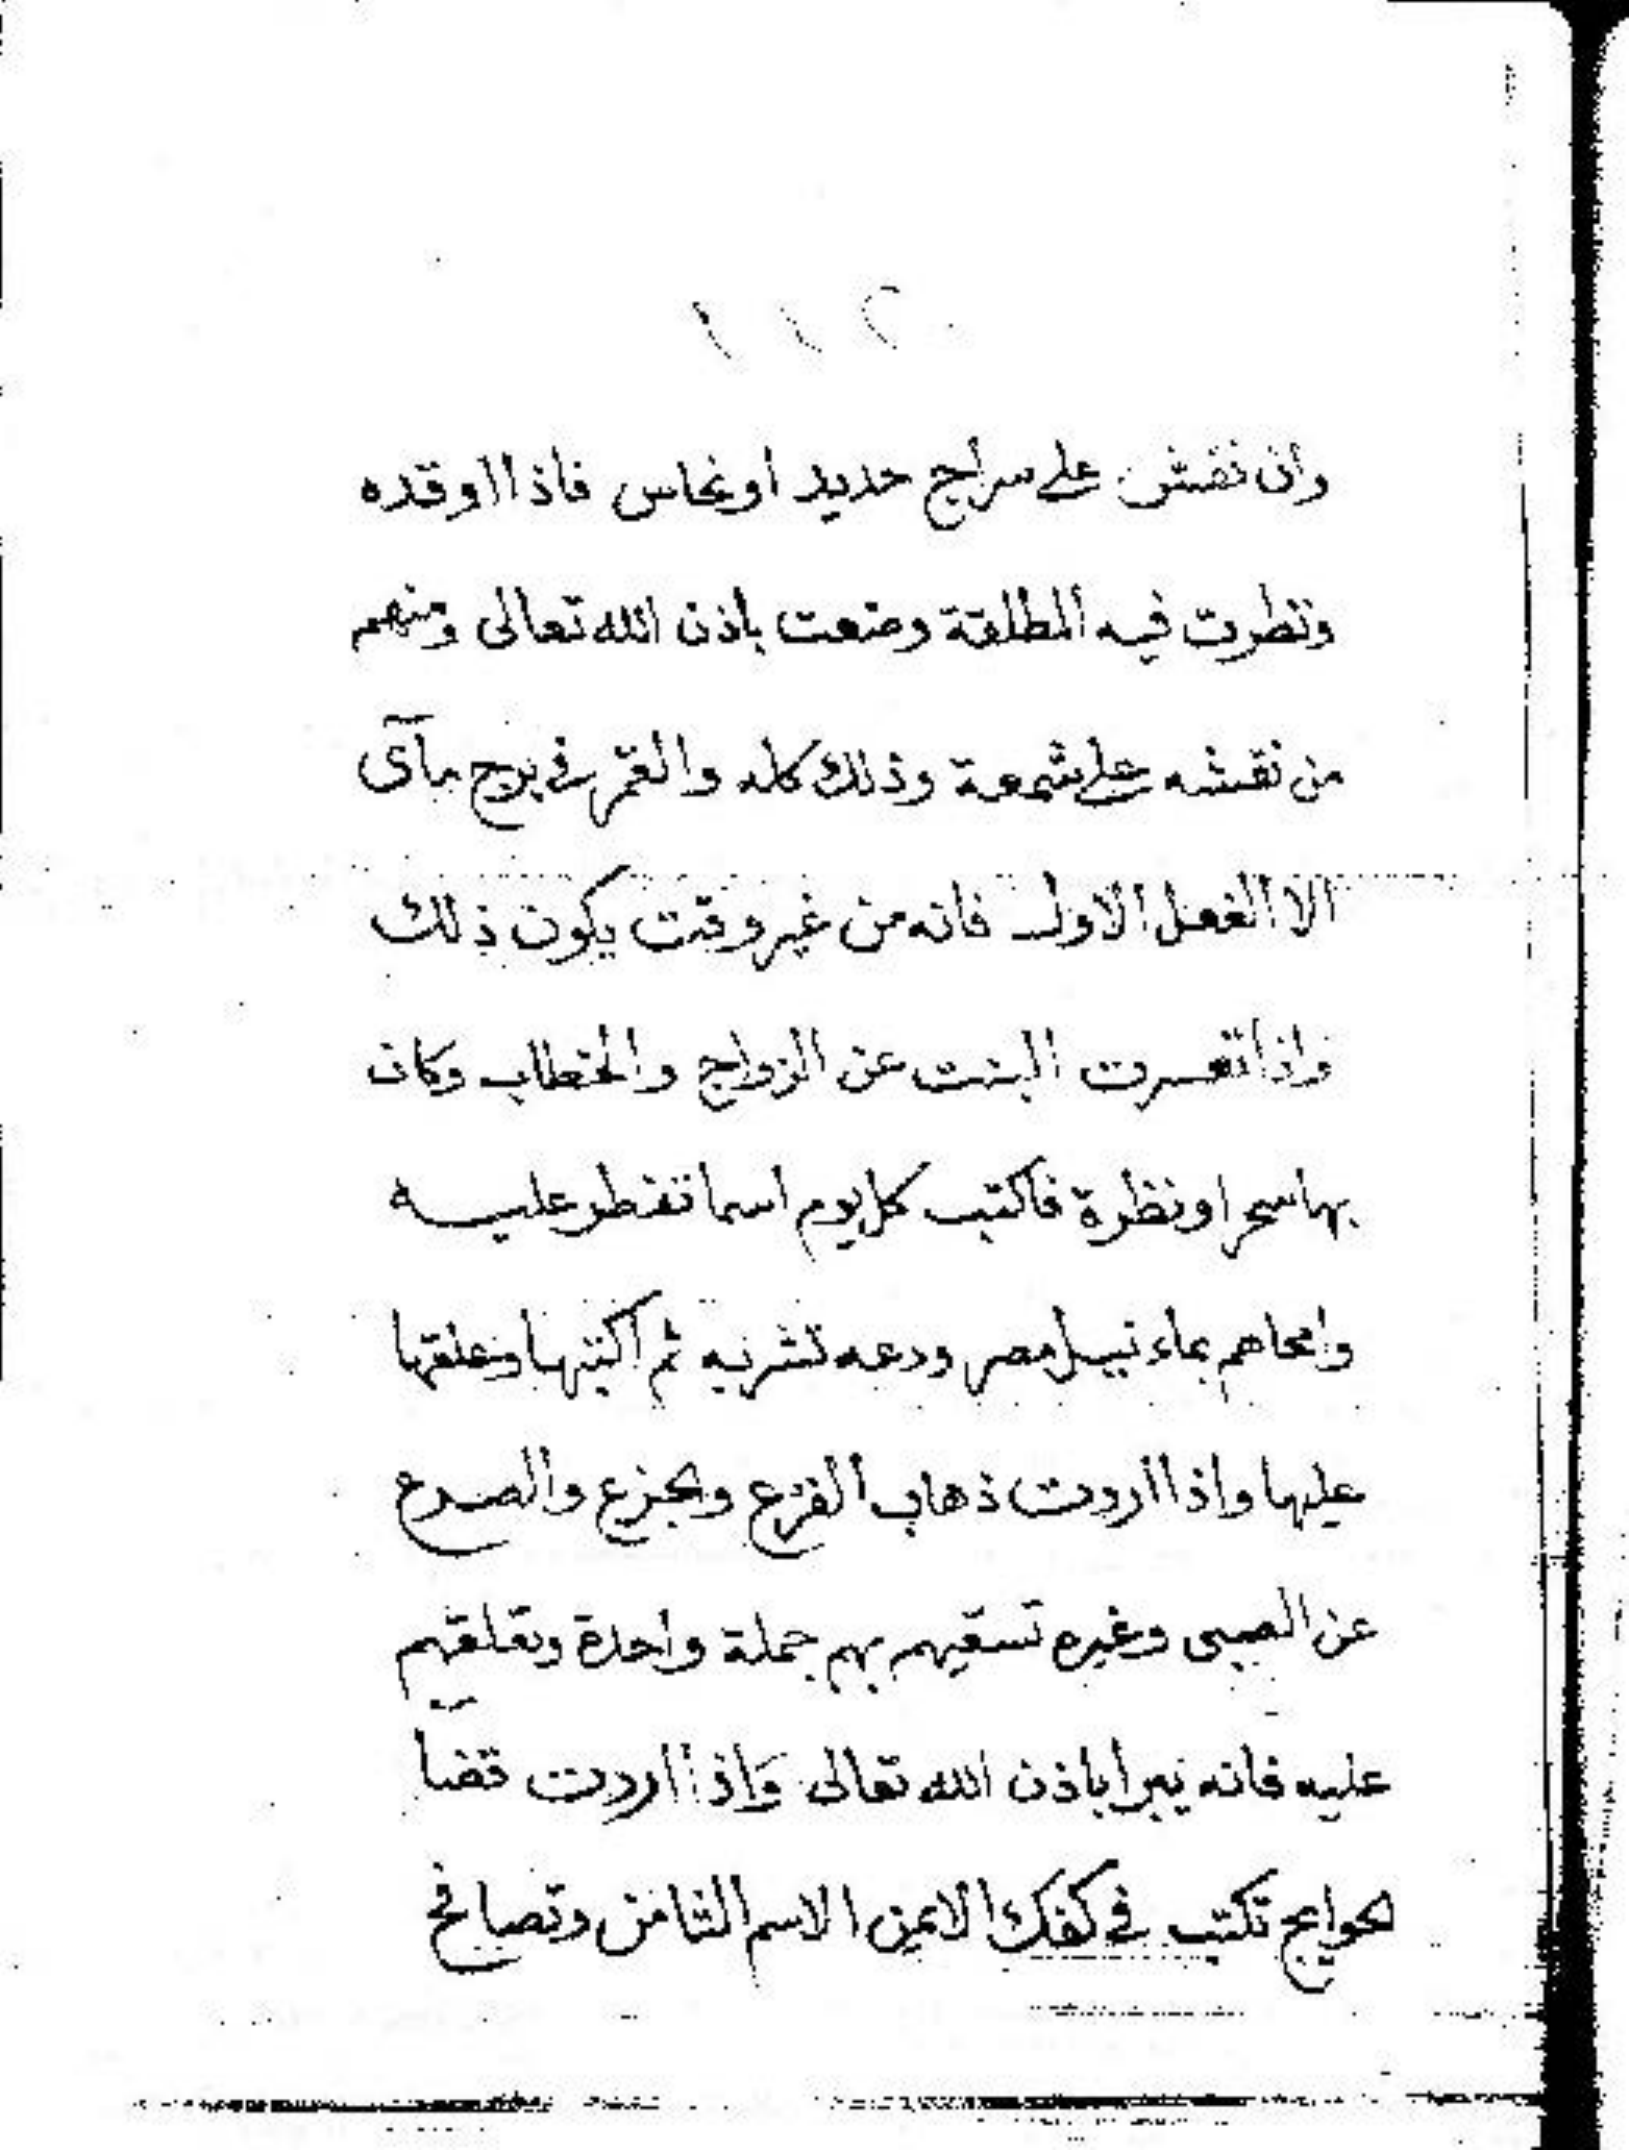 وان نقش على سراج حديد او نحاس فاذا اوقده
ونظرت فيه المطلقة وضعت باذن الله تعالى ومنهم
من نقشه على شمعة وذلك كله والقمر في برج مآئى
الا الفعل الاول فانه من غير وقت يكون ذلك
واذا تعسرت البنت عن الزواج والخطاب وكان
بها سحر او نظرة فاكتب كل يوم اسما تفطر عليه
وامحاهم بماء نيل مصر ودعه تشربه ثم اكتبها وعلقها
عليها واذا اردت ذهاب الفزع والجزع والصرع
عن الصبى وغيره تسقيهم بهم جملة واحدة وتعلقهم
عليه فانه يبرا باذن الله تعالى وَاِذا اردت قضآ
الحوايج تكتب في كفك الايمن الاسم الثامن وتصافح